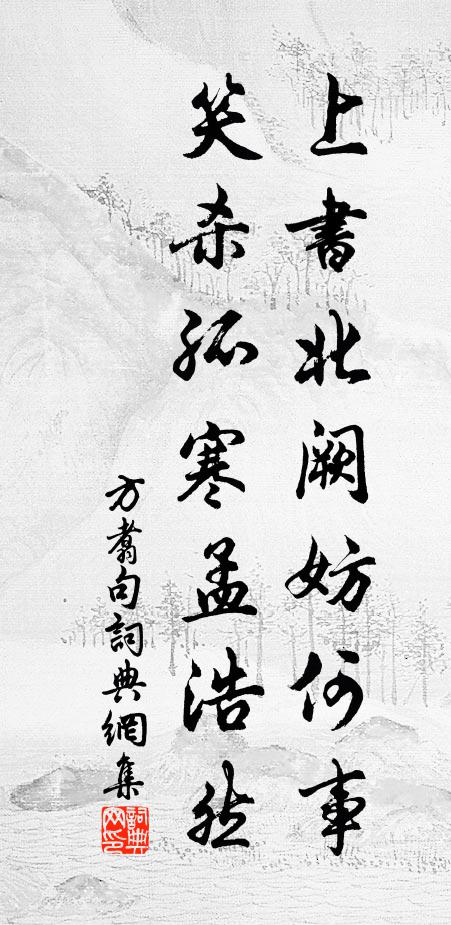 上書北闕妨何事
笑殺孤寒孟浩然
方翥句詞典網集
詞典
网印